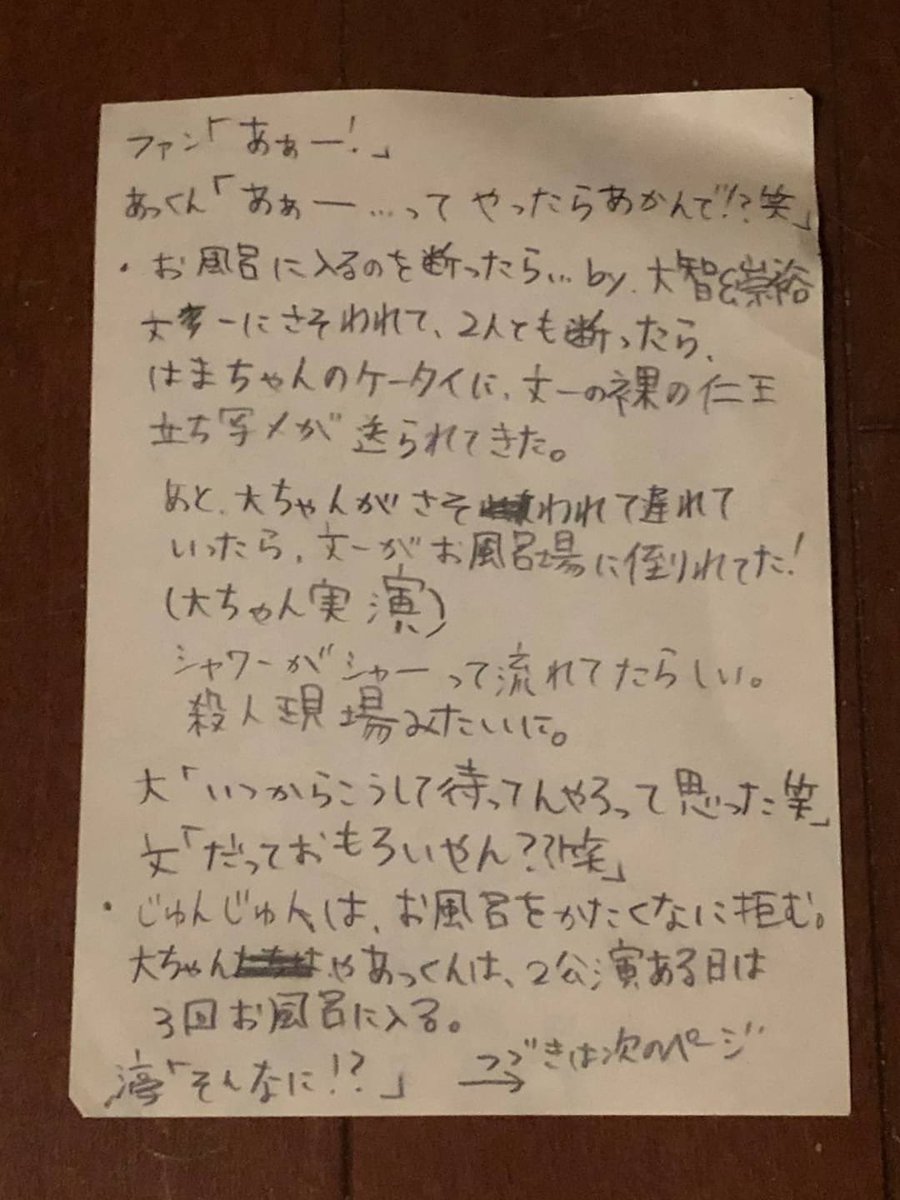 ファン「あぁー!」
あっくん「あぁー…って やったらあかんで!?笑」
・お風呂に入るのを断ったら… by.大智&崇裕
文一にさそわれて、2人とも断ったら、
はまちゃんのケータイに、文一の裸の仁王
立ち写メが送られてきた。
あと、大ちゃんがさそわれて遅れて
いったら、文一がお風呂場に倒れてた!
(大ちゃん実演)
シャワーがシャーって流れてたらしい。
殺人現場みたいに。
大「いつからこうして待ってんやろって思った笑」
文「だっておもろいやん??笑」
・じゅんじゅんは、お風呂をかたくなに拒む。
大ちゃんやあっくんは、2公演ある日は
3回お風呂に入る。
淳「そんなに!?」 → つづきは次のページ